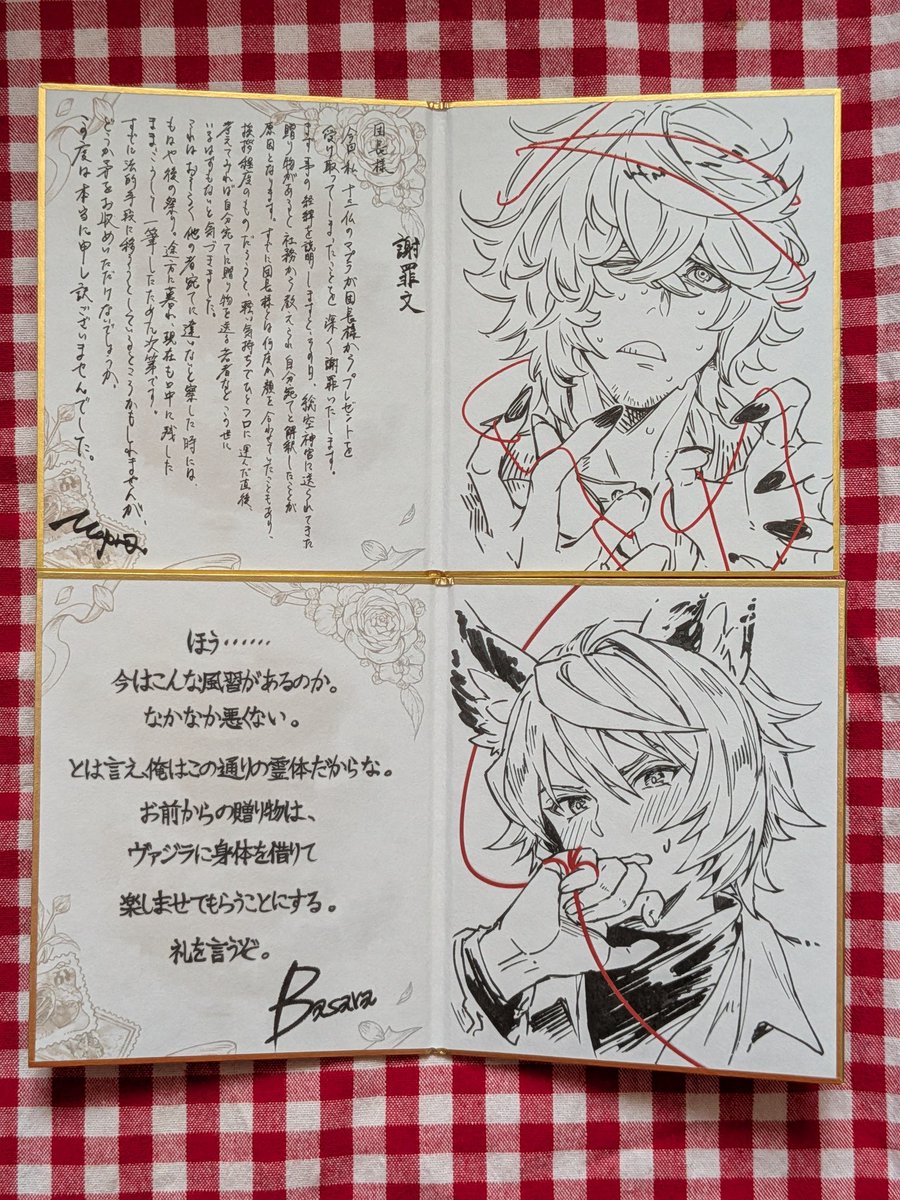 謝罪文
団長様
今回私、が団長様からプレゼントを
受け取ってしまったことを深く謝罪いたします。
まず事の経緯を説明しますと神宮に送られてきた
贈り物があると社務から教えられ自分宛てと解釈したことが
原因となります。すでに団長様とは何度か顔を合わせていたこともあり、
挨拶程度のものだろうと、軽い気持ちでひとつ口に運んだ直後、
考えてみれば自分宛てに贈り物を送る者などこの世に
いるはずもないと気づきました。
これはおそらく、他の者宛てに違いないと察した時には、
もはや後の祭り。途方に暮れ、現在も口中に残した
まま、こうして一筆したためた次第です。
すでに法的手段に移ろうとしているところかもしれませんが、
どうか矛をお収めいただけないでしょうか。
この度は本当に申し訳ございませんでした。
ほう……
今はこんな風習があるのか。
なかなか悪くない。
とは言え、俺はこの通りの霊体だからな。
お前からの贈り物は、
ヴァジラに身体を借りて
楽しませてもらうことにする。
礼を言うぞ。
Basara